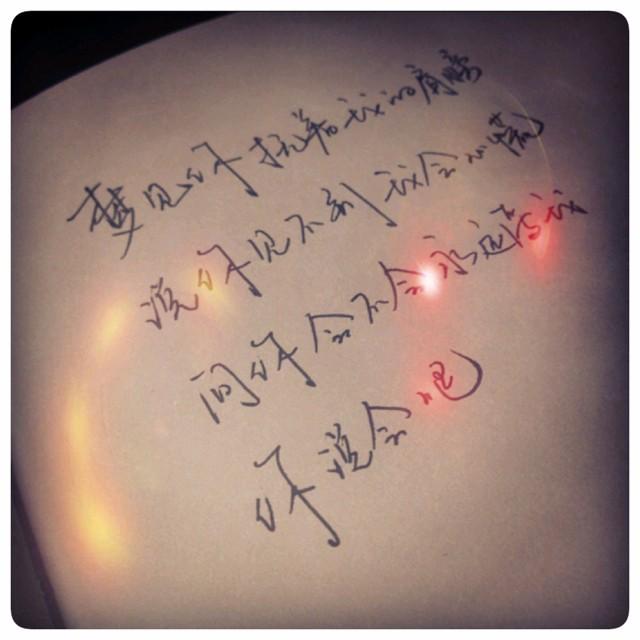 梦见你扶着我的肩膀
说你见不到我会心慌
问你会不会永远爱我
你说会吧